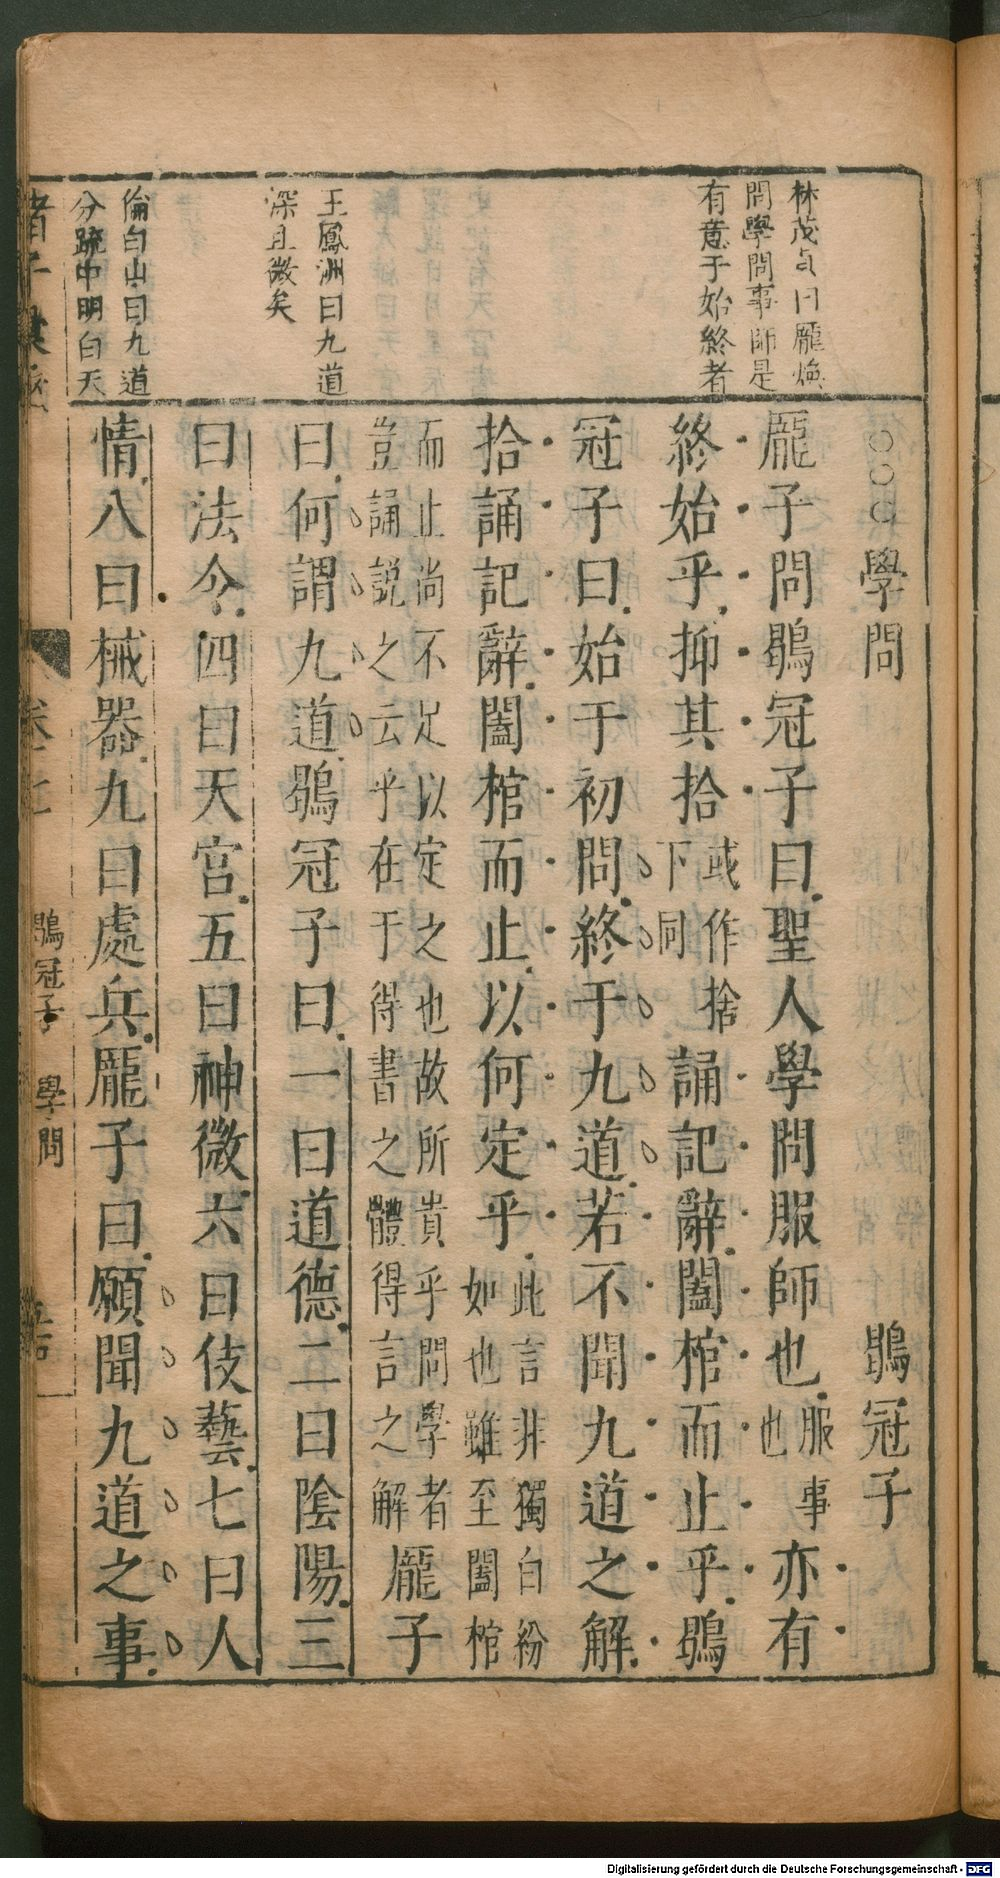 林茂貞曰龐煥
問學問事師是
有意于始終者
王鳳洲曰九道
深且微矣
倫白山曰九道
分疏中明白天
○○○學問 鶡冠子
龐子問鶡冠子曰聖人學問服師也服事也亦有
終始乎抑其拾或作捨下同誦記辭闔棺而止乎鶡
冠子曰始于初問終于九道若不聞九道之解
拾誦記辭闔棺而止以何定乎此言非獨白紛如也雖至闔棺
而止尚不足以定之也故所貴乎問學者豈誦説之云乎在于得書之體得言之解龐子
曰何謂九道鶡冠子曰一曰道德二曰陰陽三
曰法令四曰天官五曰神微六曰伎藝七曰人
情八曰械器九曰處兵龐子曰願聞九道之事
鶡冠子 學問
Digitalisierung gefördert durch die Deutsche Forschungsgemeinschaft - DFG